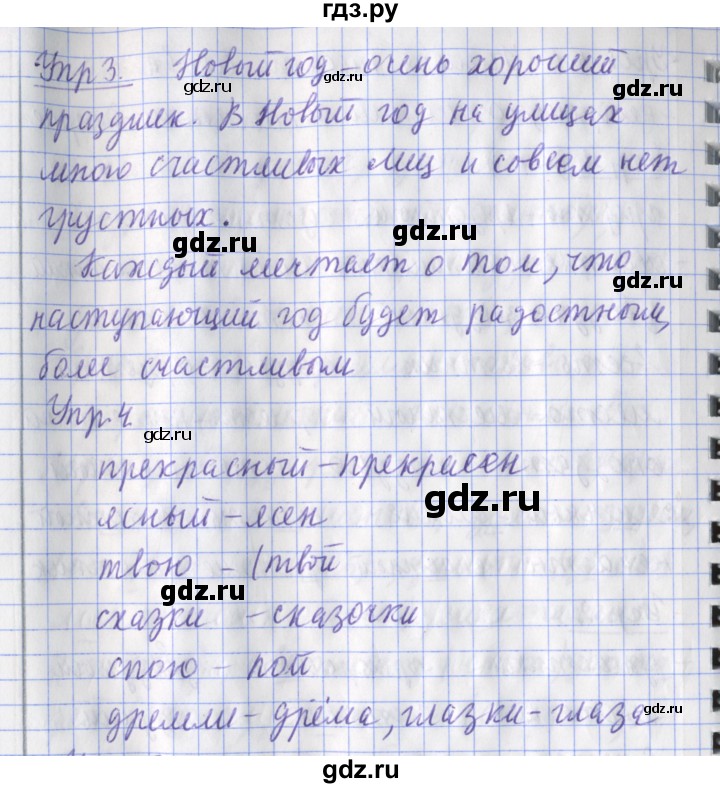 гдз.ру
Упр 3. Новый год – очень хороший
gdz.ru gdz.ru gdz.ru
праздник. В Новый год на улицах
много счастливых лиц и совсем нет
грустных.
gdz.ru gdz.ru
Каждый мечтает о том, что
gdz.ru
наступающий год будет радостным,
более счастливым
Упр. 4.
gdz.ru
прекрасный – прекрасен
gdz.ru
ясный – ясен
твою – (твой
gdz.ru gdz.ru
сказки – сказочки
спою – пой
gdz.ru
дремли – дрёма, глазки – глаза
gdz.ru gdz.ru
gdz.ru